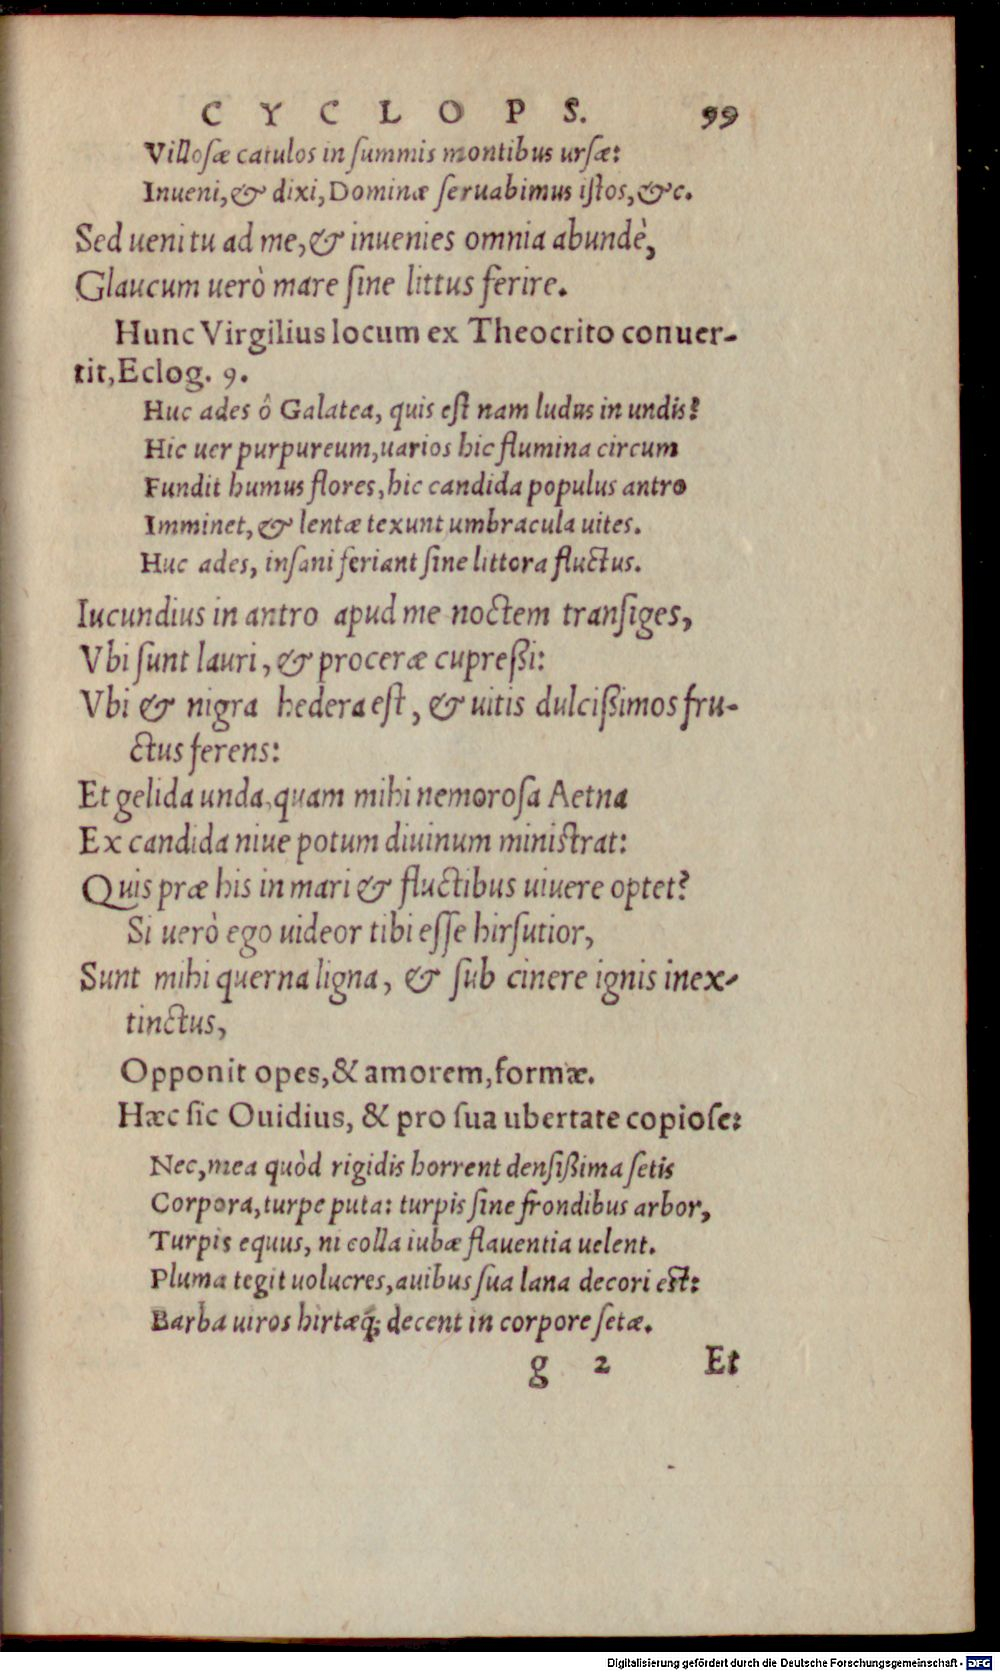 CYCLOPS. 99
Villosæ catulos in summis montibus ursæ:
Inueni, & dixi, Dominæ seruabimus istos, &c.
Sed ueni tu ad me, & inuenies omnia abundè,
Glaucum uerò mare sine littus ferire.
Hunc Virgilius locum ex Theocrito conuer-
tit, Eclog. 9.
Huc ades ô Galatea, quis est nam ludus in undis?
Hic uer purpureum, uarios hic flumina circum
Fundit humus flores, hic candida populus antro
Imminet, & lentæ texunt umbracula uites.
Huc ades, insani feriant sine littora fluctus.
Iucundius in antro apud me noctem transiges,
Vbi sunt lauri, & proceræ cupreßi:
Vbi & nigra hedera est, & uitis dulcißimos fru-
ctus ferens:
Et gelida unda, quam mihi nemorosa Aetna
Ex candida niue potum diuinum ministrat:
Quis præ his in mari & fluctibus uiuere optet?
Si uerò ego uideor tibi esse hirsutior,
Sunt mihi querna ligna, & sub cinere ignis inex-
tinctus,
Opponit opes, & amorem, formæ.
Hæc sic Ouidius, & pro sua ubertate copiose:
Nec, mea quòd rigidis horrent densißima setis
Corpora, turpe puta: turpis sine frondibus arbor,
Turpis equus, ni colla iubæ flauentia uelent.
Pluma tegit uolucres, auibus sua lana decori est:
Barba uiros hirtæq́; decent in corpore setæ.
g 2 Et
Digitalisierung gefördert durch die Deutsche Forschungsgemeinschaft - DFG